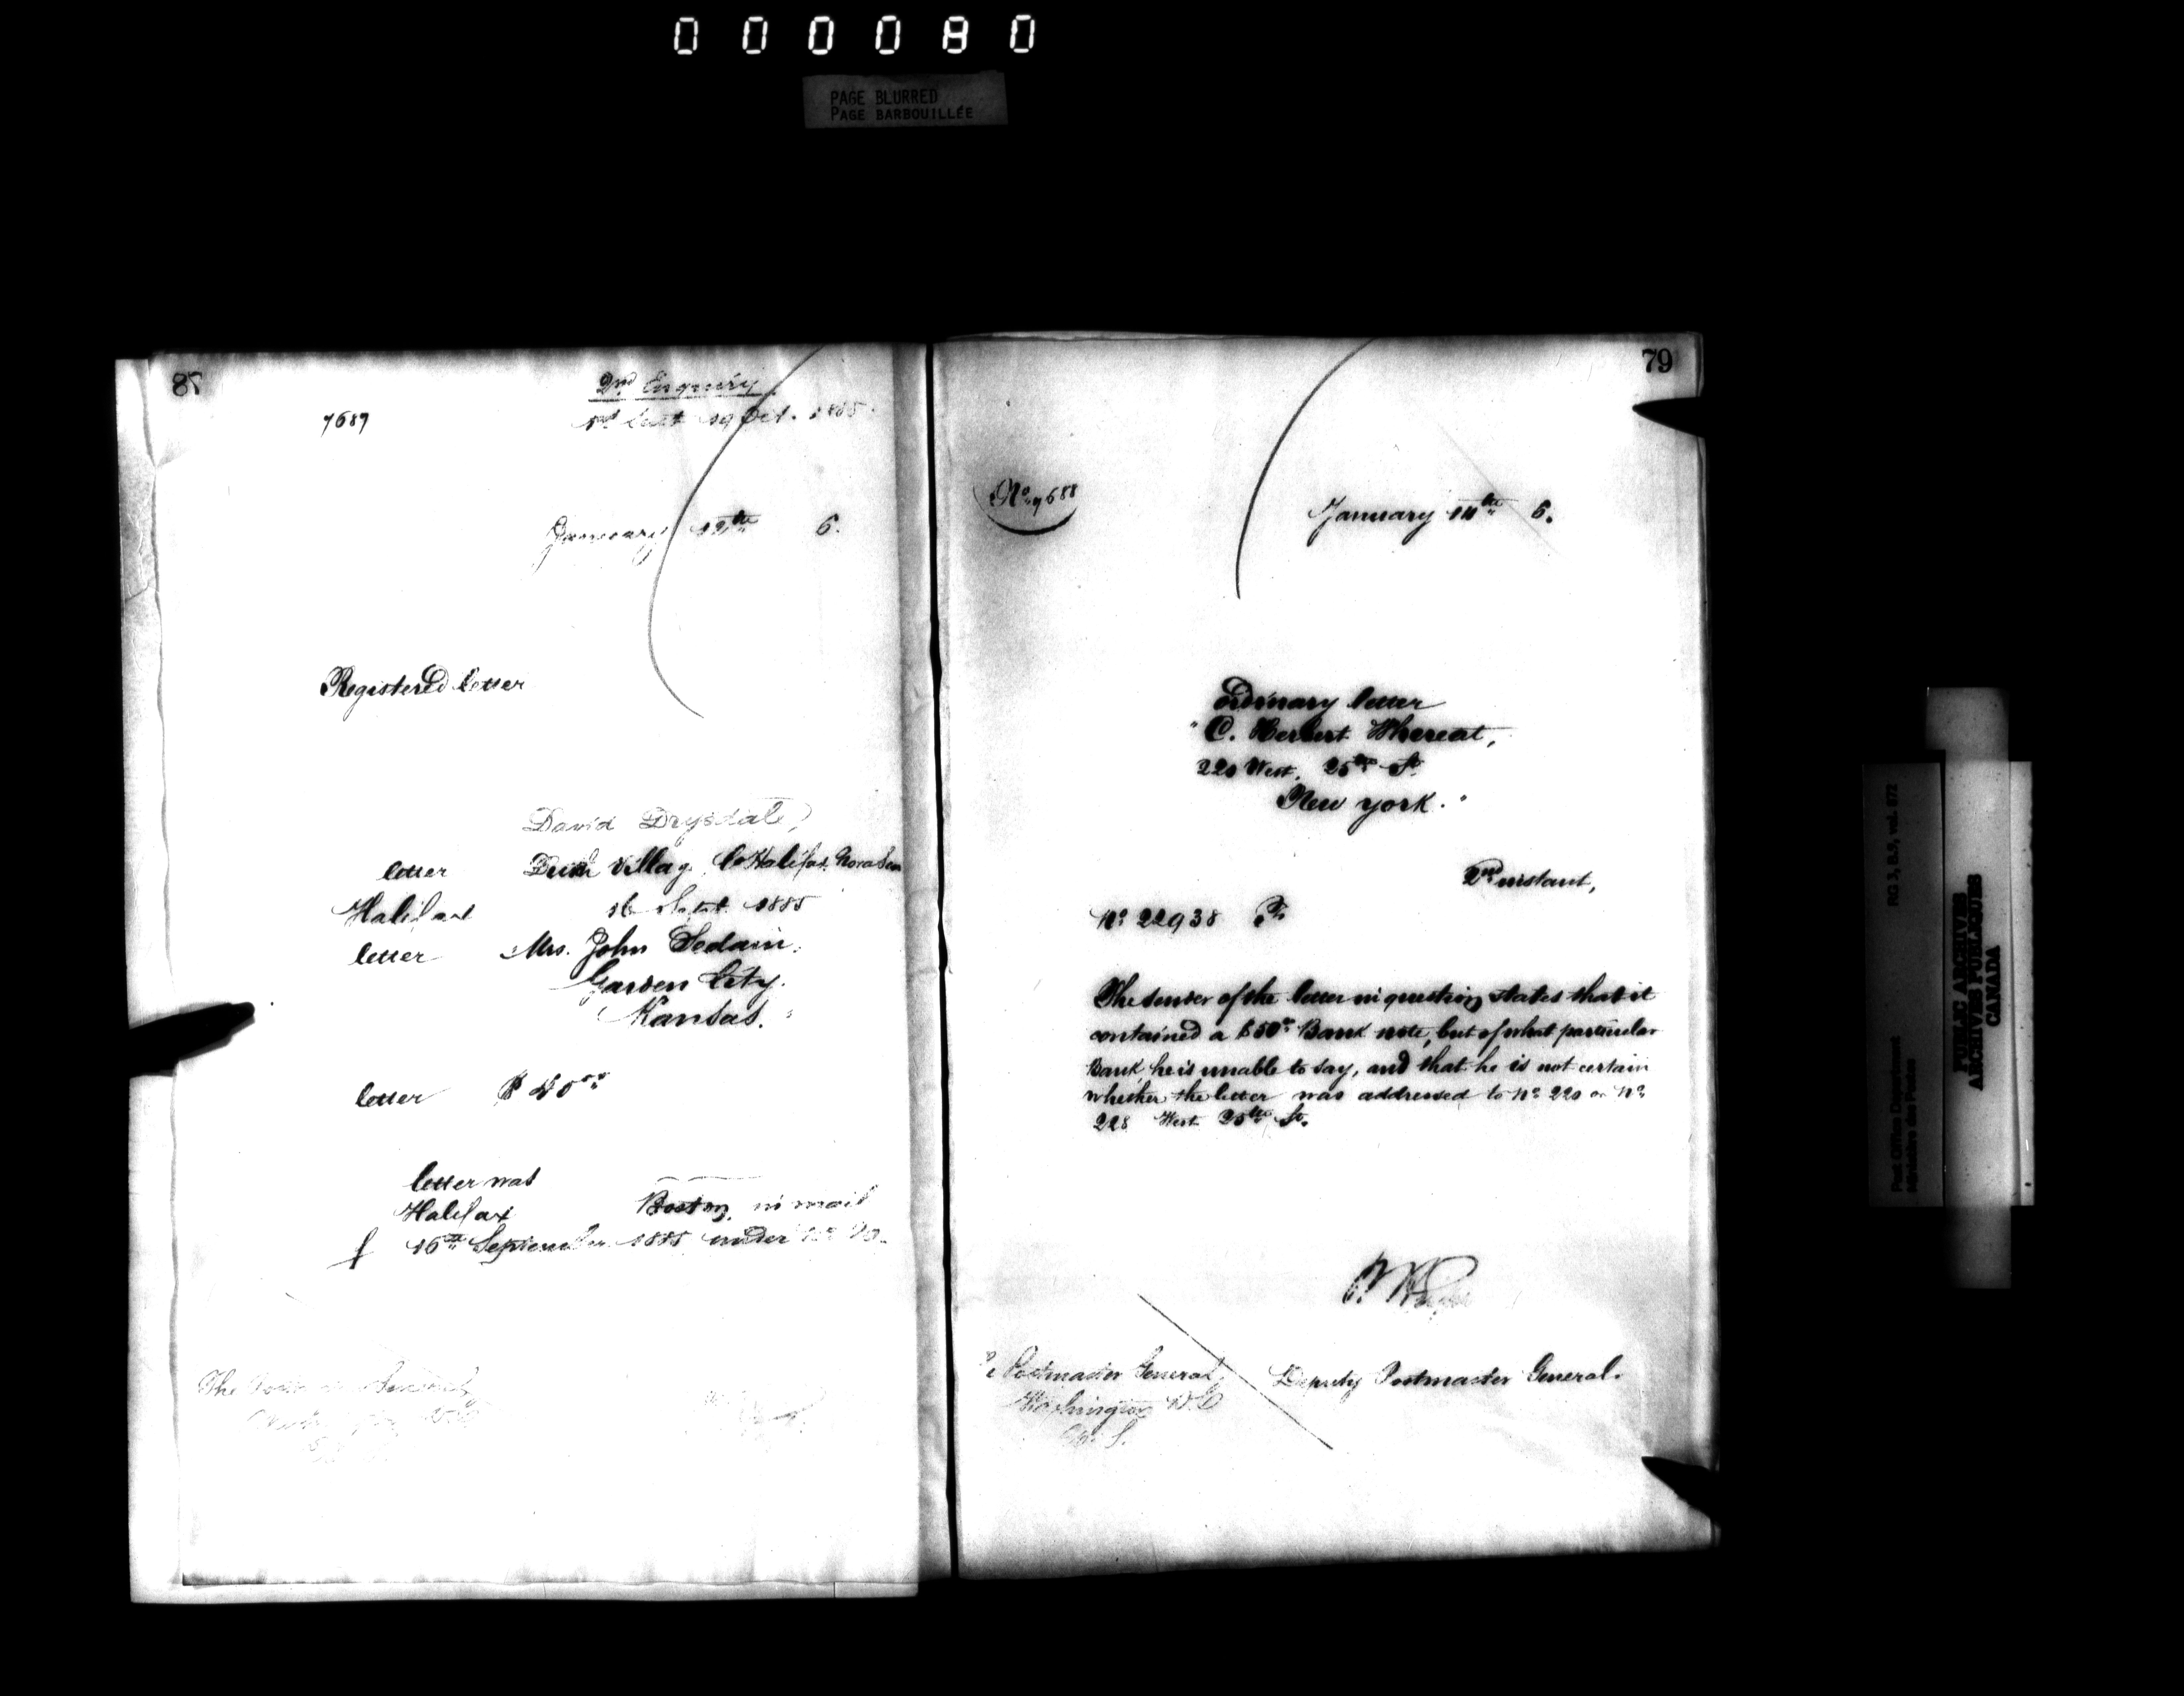 000080
PAGE BLURRED
PAGE BARBOUILLÉE
78
2nd Enquiry
1st sent 19 Oct. 1885.
7689
January 12th 6.
Registered letter
David Drysdale,
letter Dutch Village, Co Halifax, Nova
Halifax 16 Sept 1885
letter Mrs. John Sedam.
Garden City.
Kansas."
letter $40.00
letter was
Halifax Boston, in mail
f 16th September 1885 under No
The
79
No. 7688
January 14th 6.
Ordinary letter
"C. Herbert Whereat,
220 West. 25th St.
New York."
2nd instant,
No. 22938 P.
The sender of the letter in question states that it
contained a $50. Bank note, but of what particular
Bank he is unable to say, and that he is not certain
whether the letter was addressed to No. 220 or No.
228 West 25th St.
e Postmaster General, Deputy Postmaster General.
Washington D.C.
U.S.
RG 3, B.9, vol. 672
Post Office Department
Ministère des Postes
PUBLIC ARCHIVES
ARCHIVES PUBLIQUES
CANADA